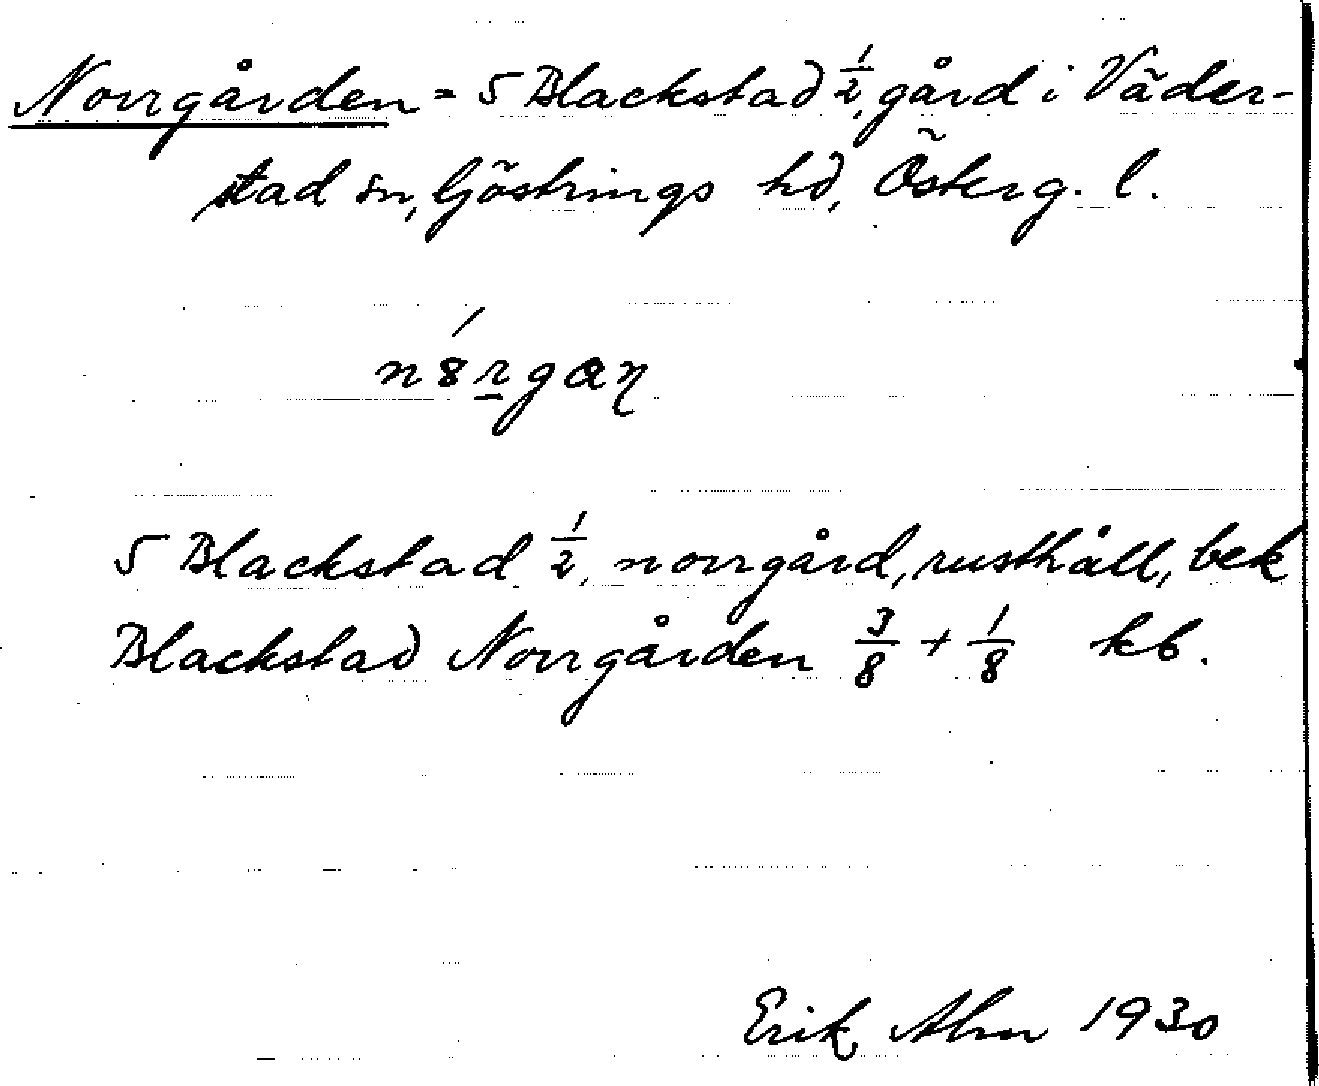 Norrgården = 5 Blackstad 1/2, gård i Väder-
stad sn, Göstrings hd, Österg. l.
n8rgaŋ
5 Blackstad 1/2, norrgård, rusthåll, bek
Blackstad Norrgården 3/8 + 1/8 kb.
Erik Alm 1930